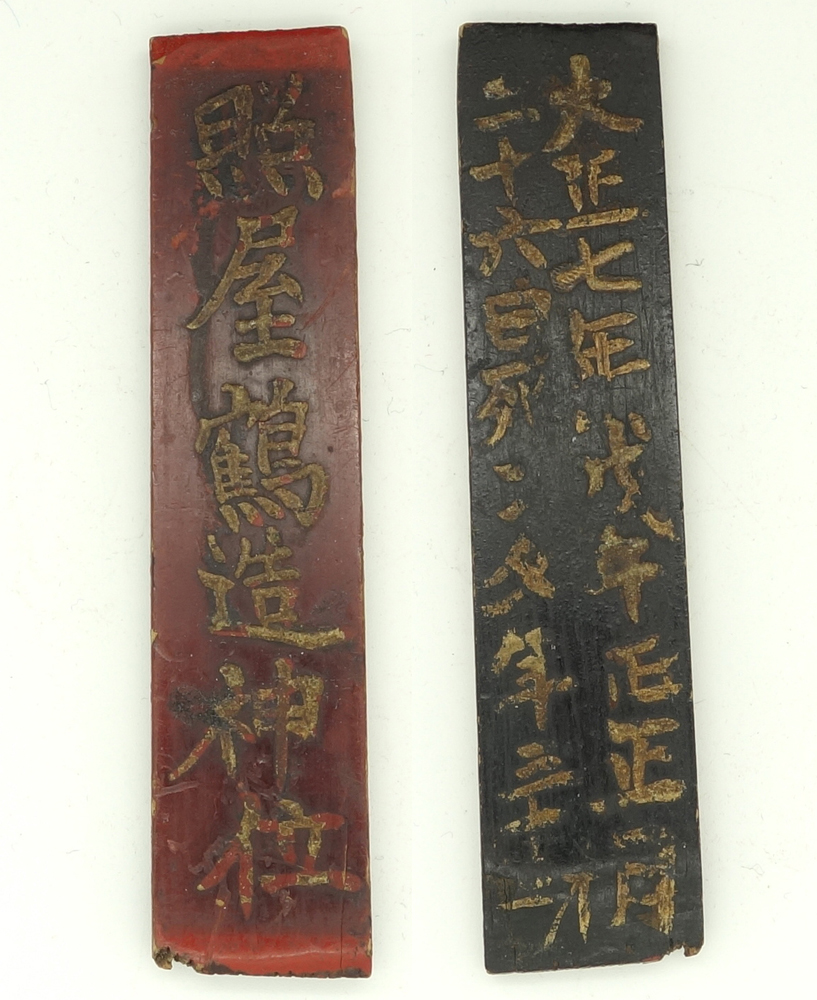 照屋鶴造神位
大正七年戊午正正月
二十六日死 年 才